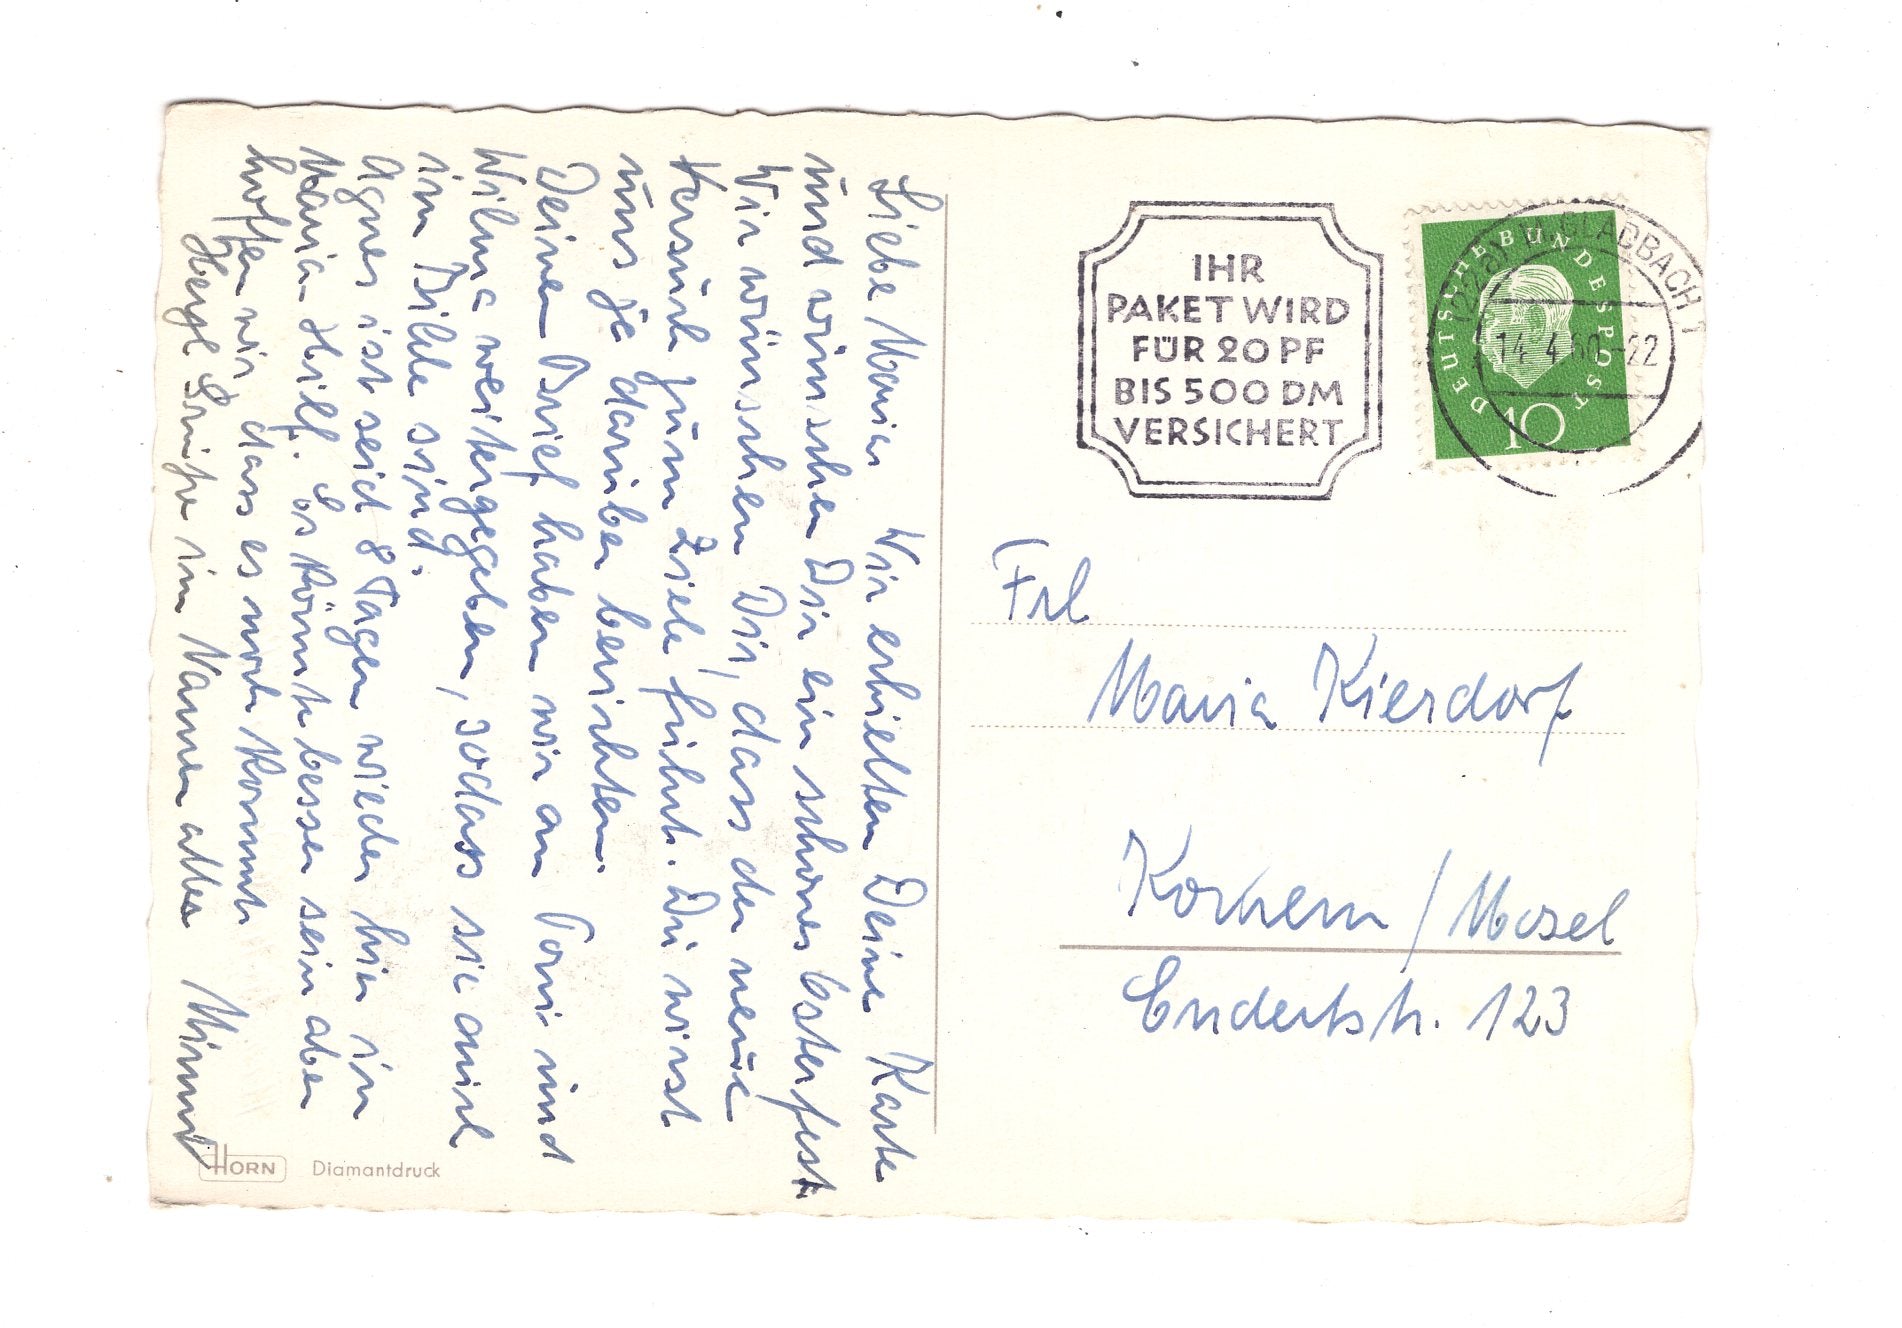 Liebe Maria Wir erhielten Deine Karte
und wünschen Dir ein schönes Osterfest
Wir wünschen Dir, dass der neue
Versuch zum Ziele führt. Du wirst
uns ja darüber berichten.
Deinen Brief haben wir an Toni und
Wilma weitergegeben, sodass sie auch
im Bilde sind.
Agnes ist seid 8 Tagen wieder hier in
Maria-Hilf. Es könnte besser sein aber
hoffen wir dass es noch kommt
Herzl. Grüsse im Namen aller
HORN Diamantdruck
IHR
PAKET WIRD
FÜR 20 PF
BIS 500 DM
VERSICHERT
DEUTSCHE BUNDESPOST
10
(22a) M. GLADBACH 1
14.4.60-22
Frl
Maria Kierdorf
Kochem / Mosel
Endertstr. 123